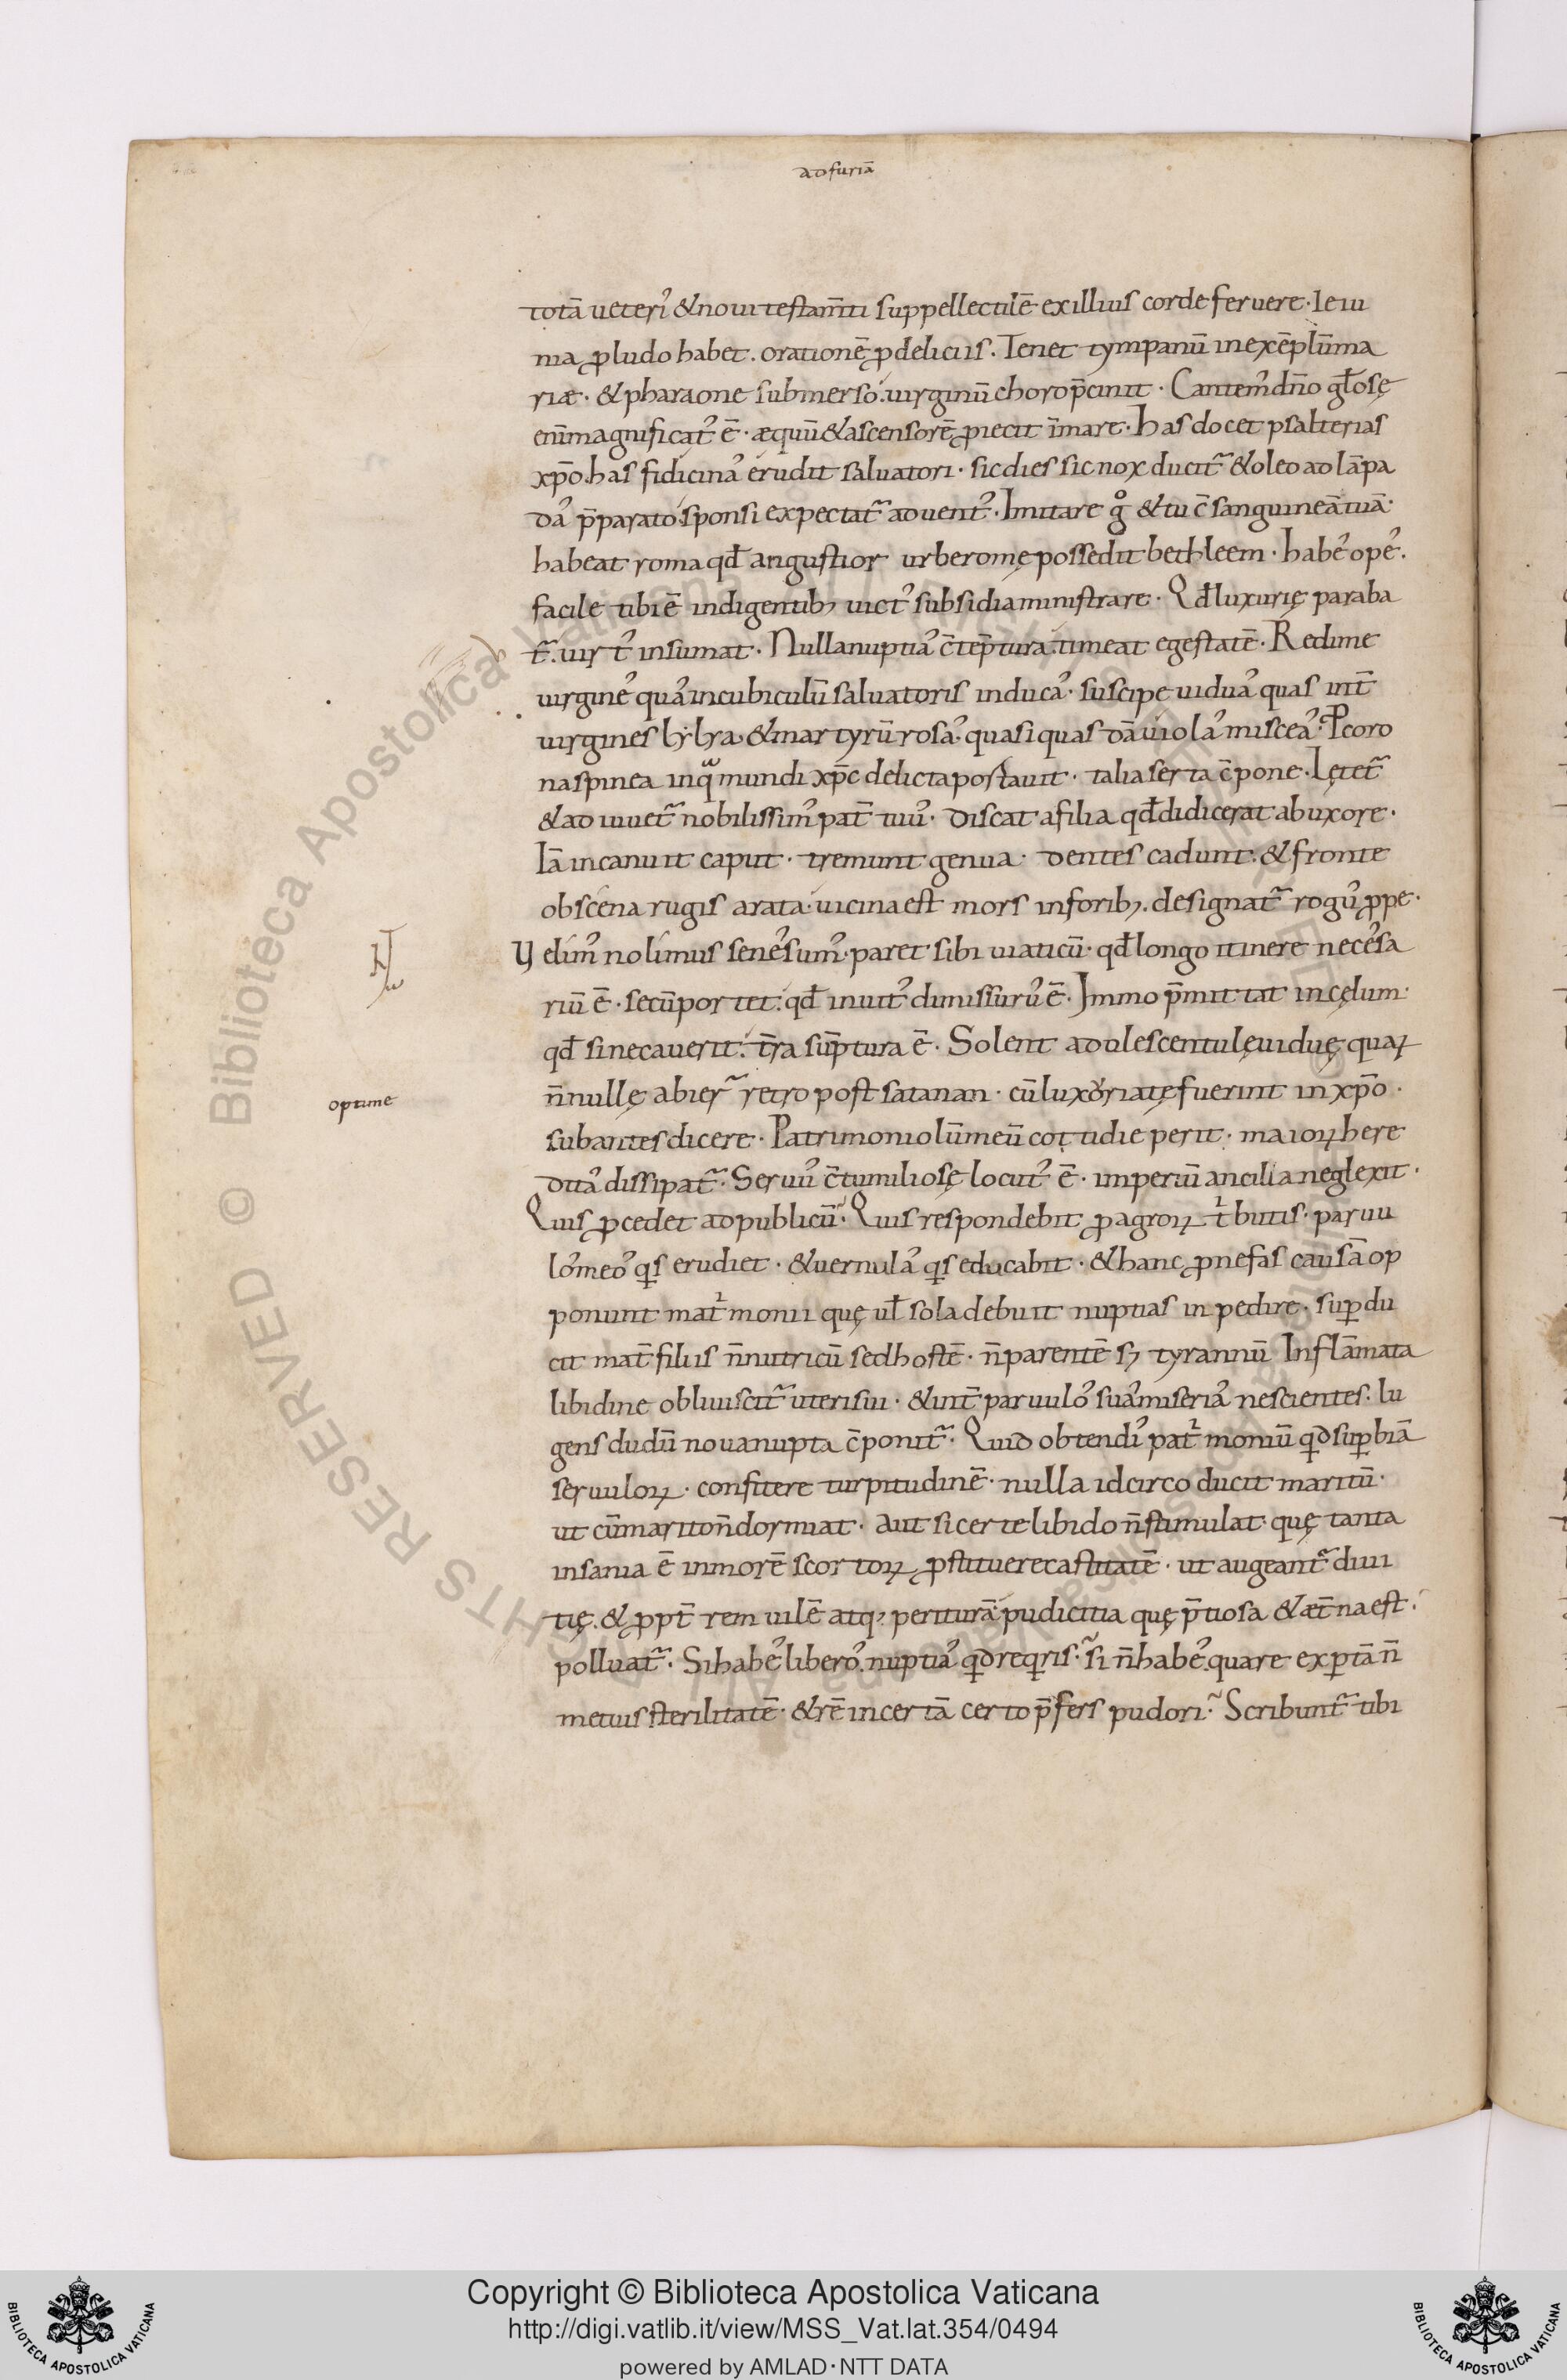 ad furiā
totā ueterꝰ & noui testam̄ti suppellectilē ex illius corde feruere. Ieiu
nia ꝓ ludo habet. orationē ꝓ deliciis. Tenet tympanū in exēplū ma
riæ. & pharaone submerso. uirginū choro p̄cinit. Cantemꝰ dn̄o gl̄osę
eni magnificatꝰ ē. æquū & ascensorē ꝓiecit ī mare. has docet psalterias
xp̄o. has fidicinaꝰ erudit saluatori. sic dies sic nox ducit᷑ & oleo ad lāpa
daꝰ p̄parato. sponsi expectat᷑ aduentꝰ. Imitare gͦ & tu c̄sanguineā tuā.
habeat roma qđ angustior urbe romę possedit bethleem. habeꝰ opeꝰ.
facile tibi ē indigentibꝫ uictꝰ subsidia ministrare. Qđ luxurię paraba
t᷑. uirtꝰ insumat. Nulla nuptiaꝰ c̄tēptura. timeat egestatē. Redime
uirgineꝰ quaꝰ in cubiculū saluatoris inducaꝰ. suscipe uiduaꝰ quas int̄
uirgines lẏlẏa & martyrū rosaꝰ. quasi quasdā uiolaꝰ misceaꝰ. P coro
na spinea in qua mundi xp̄c delicta postauit. talia serta c̄pone. Lętet᷑
& adiuuet᷑ nobilissimꝰ pat̄ tuuꝰ. discat a filia qđ didicerat ab uxore.
Iā incanuit caput. tremunt genua. dentes cadunt. & fronte
obscena rugis arata. uicina est mors in foribꝫ. designat᷑ roguꝰ ꝓpe.
Uelimꝰ nolimus seneꝰsumꝰ. paret sibi uiaticū. qđ longo itinere neceꝰsa
riū ē. secū portet. qđ inuitꝰ dimissuruꝰ ē. Immo p̄mittat in cęlum.
qđ si necauerit. t̄ra sūptura ē. Solent adulescentulę uiduę quaꝝ
n̄nullę abier᷑ retro post satanan. cū luxoriatę fuerint in xp̄o.
subantes dicere. Patrimoniolū meū cottidie perit. maioꝝ here
ditaꝰ dissipat᷑. Seruuꝰ c̄tumiliosę locutꝰ ē. imperiū ancilla neglexit.
Quis ꝓcedet ad publicū. Quis respondebit ꝓ agroꝝ tͥbutis. paruu
loꝰ meoꝰ qͥs erudiet. & uernulaꝰ qͥs educabit. & hanc ꝓ nefas causā op
ponunt matͥmonii quę ul̄ sola debuit nuptias inpedire. suꝑdu
cit mat̄ filiis n̄ nutricū sed hostē. n̄ parentē sꝫ tyrannū Inflāmata
libidine obliuiscit᷑ uteri sui. & int̄ paruuloꝰ suaꝰ miseriaꝰ nescientes. lu
gens dudū noua nupta c̄ponit᷑. Quid obtendiꝰ patͥmoniū qͥd suꝑbiā
seruuloꝝ. confitere turpitudinē. nulla idcirco ducit maritū.
ut cū marito n̄ dormiat. Aut si certe libido n̄ stimulat. quę tanta
insania ē in morē scortoꝝ ꝓstituere castitatē. ut augeant᷑ diui
tię. & ꝓpt̄ rem uilē atqꝫ perituraꝰ. pudicitia quę p̄tiosa & æt̄na est.
polluat᷑. Si habeꝰ liberoꝰ. nuptiaꝰ qͥd reqͥris. si n̄ habeꝰ. quare exꝑtā n̄
metuis sterilitatē. & rē incertā certo p̄fers pudori. Scribunt᷑ tibi
optime
Copyright © Biblioteca Apostolica Vaticana
http://digi.vatlib.it/view/MSS_Vat.lat.354/0494
powered by AMLAD·NTT DATA